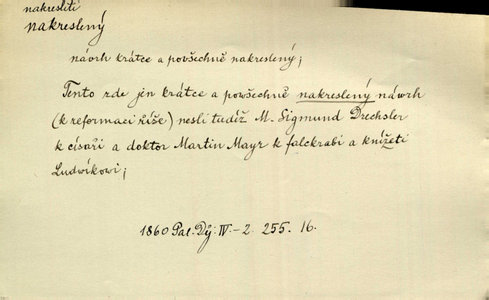 nakresliti
nakreslený
návrh krátce a povšechně nakreslený;
Tento zde jen krátce a powšechně nakreslený náwrh
(k reformaci říše) nesli tudíž M. Sigmund Drechsler
k císaři a doktor Martin Mayr k falckrabí a knížeti
Ludwíkowi;
1860 Pal. Děj. IV.-2. 255. 16.